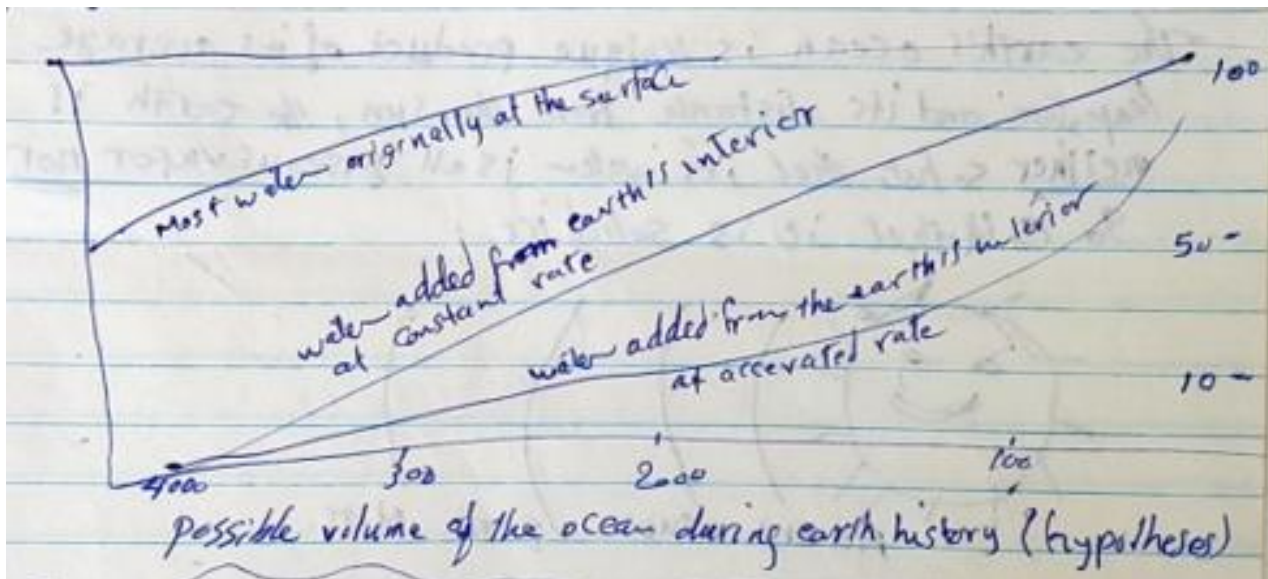 100
Most water originally at the surface
water added from earth's interior
at constant rate
50
water added from the earth's interior
at accevated rate
10
4000 300 2000 100
possible volume of the ocean during earth history (hypotheses)